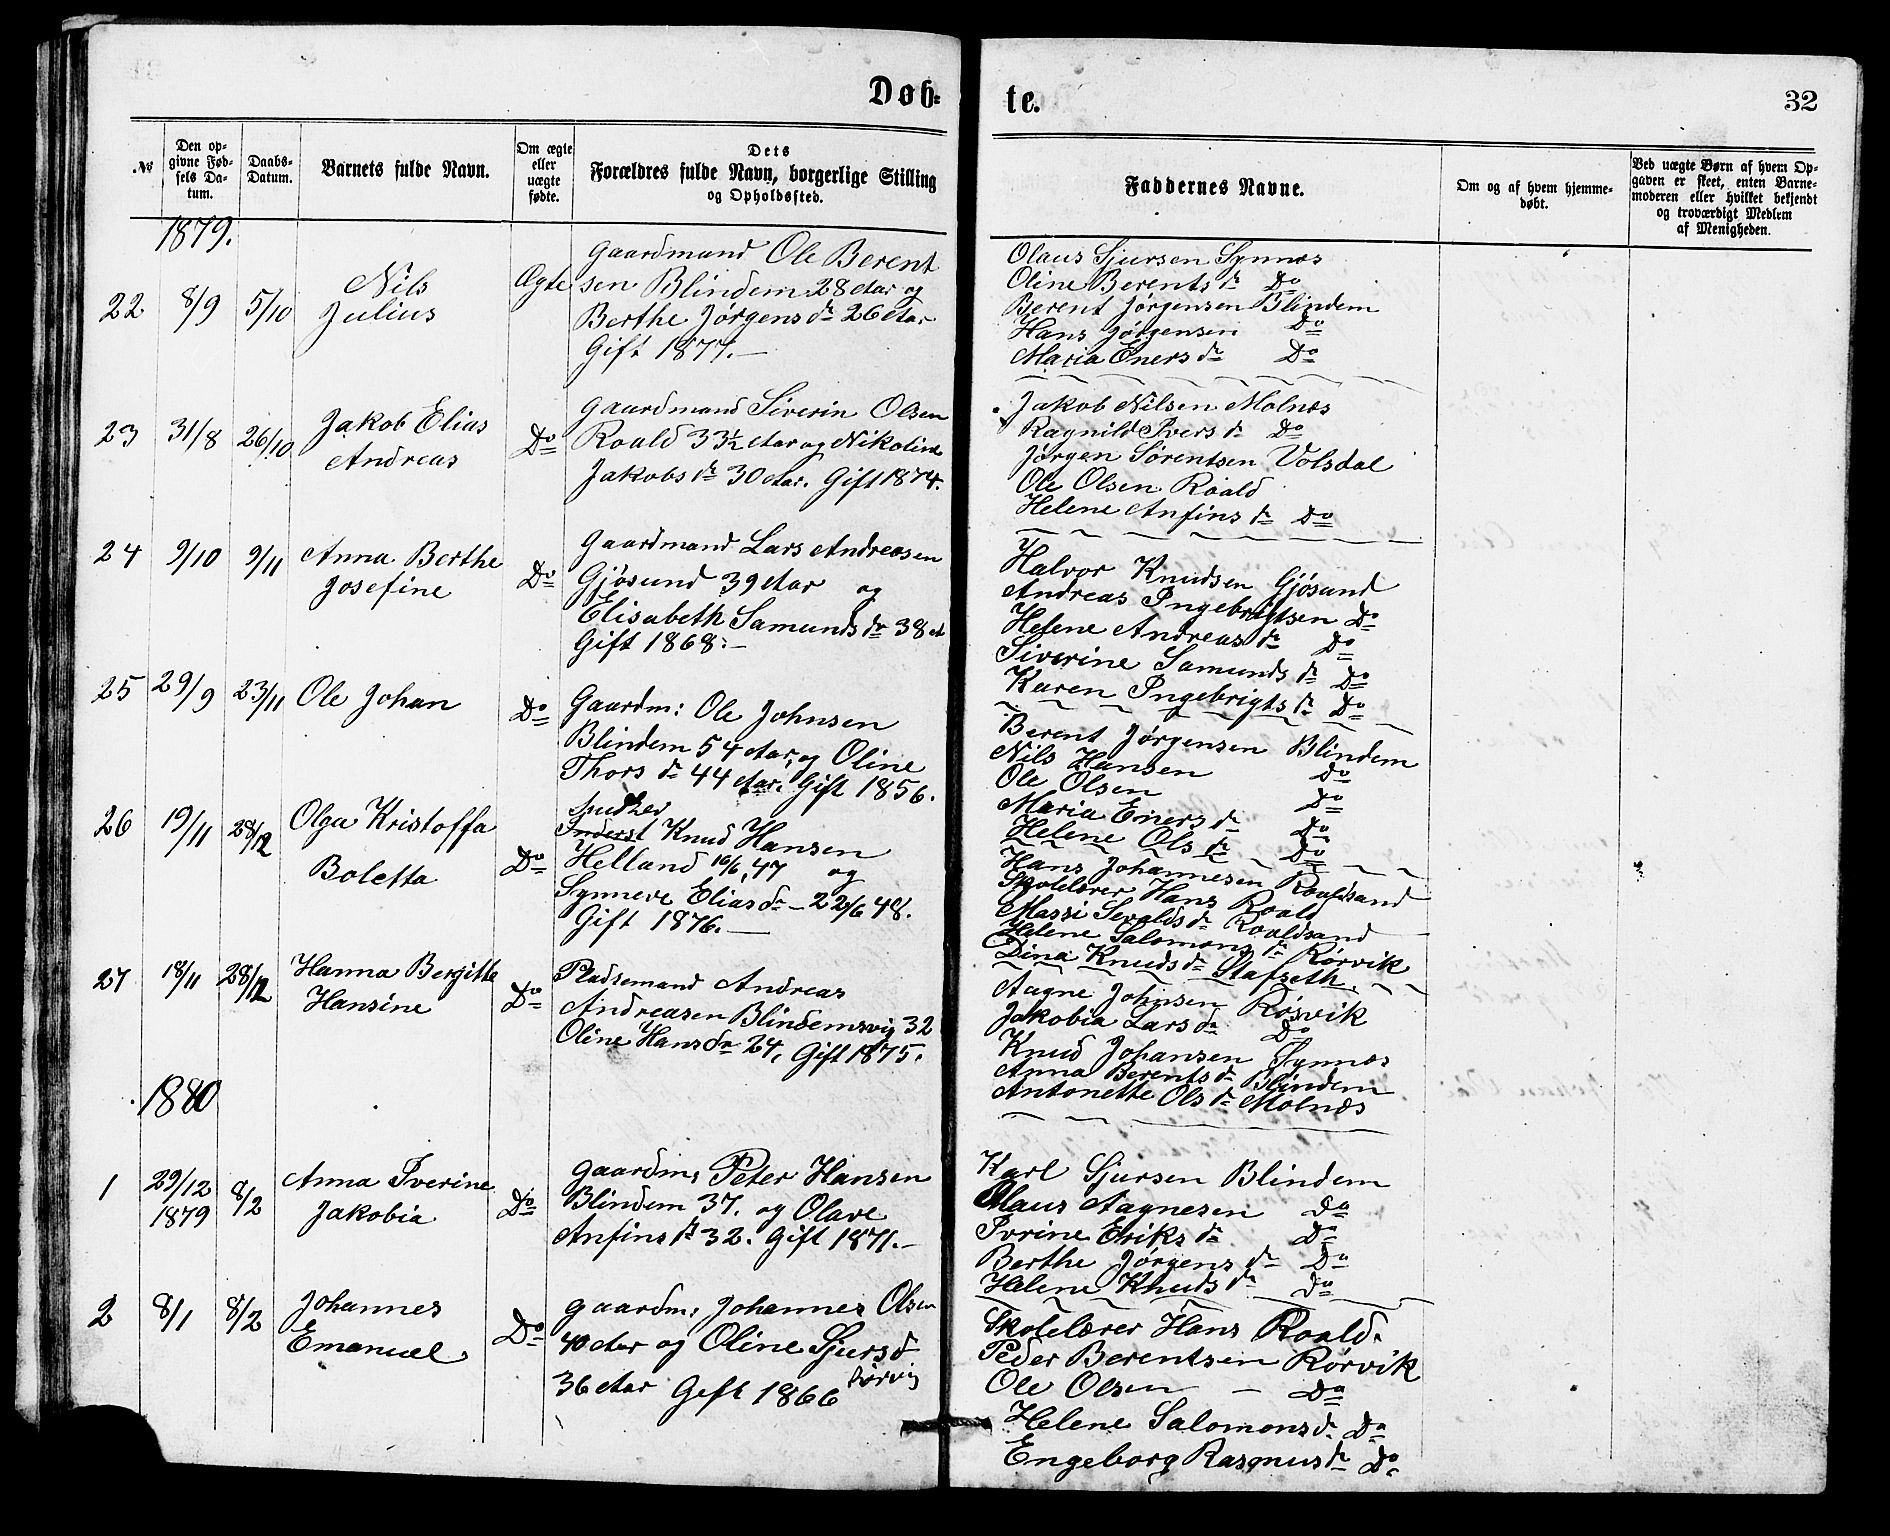 Døb=
te.
32
№
Den opgivne Fødsels Datum.
Daabs-Datum.
Barnets fulde Navn.
Om ægte eller uægte fødte.
Dets
Forældres fulde Navn, borgerlige Stilling
og Opholdssted.
Faddernes Navne.
Om og af hvem hjemmedøbt.
Ved uægte Børn af hvem Opgaven er skeet, enten Barnemoderen eller hvilket bekjendt og troværdigt Medlem af Menigheden.
1879.
22 8/9 5/10
Nils
Julius
Ægte
Gaardmand Ole Berent
sen Blindem 28 Aar og
Berthe Jørgens dr 26 Aar
Gift 1877.—
Olaus Sjursen Synnæs
Oline Berents dr Do
Berent Jørgensen Blindem
Hans Jørgensen Do
Maria Eners dr Do
23 31/8 26/10
Jakob Elias
Andreas
Do
Gaardmand Siverin Olsen
Roald 33½ Aar og Nikoline
Jakobs dr 30 Aar. Gift 1874.
Jakob Nilsen Molnæs
Ragnild Ivers dr Do
Jørgen Sørentsen Volsdal
Ole Olsen Roald
Helene Anfins dr Do
24 9/10 9/11
Anna Berthe
Josefine
Do
Gaardmand Lars Andreasen
Gjøsund 39 Aar og
Elisabeth Samunds dr 38 A
Gift 1868.—
Halvor Knudsen Gjøsund
Andreas Ingebrigtsen Do
Helene Andreas dr Do
Siverine Samunds dr Do
Karen Ingebrigts dr Do
25 29/9 23/11
Ole Johan
Do
Gaardm: Ole Johnsen
Blindem 54 Aar, og Oline
Thors dr 44 Aar. Gift 1856.
Berent Jørgensen Blindem
Nils Hansen Do
Ole Olsen Do
Maria Eners dr Do
Helene Ols dr Do
26 19/11 28/12
Olga Kristoffa
Boletta
Do
Inderst Knud Hansen
Helland 16/6, 47 og
Synneve Elias dr – 22/6 48.
Gift 1876.—
Hans Johannesen Roaldsand
Skolelærer Hans Roald
Massi Sevalds dr Roaldsand
Helene Salomons dr Rørvik
Dina Knuds dr Stafseth.
27 18/11 28/12
Hanna Bergitte
Hansine
Do
Pladsemand Andreas
Andreasen Blindemsvig 32
Oline Hans dr 24, Gift 1875.
Aagne Johnsen Rørvik
Jakobia Lars dr Do
Knud Johansen Synnæs
Anna Berents dr Blindem
Antonette Ols dr Molnæs
1880
1 29/12 1879 8/2
Anna Iverine
Jakobia
Do
Gaardm, Peter Hansen
Blindem 37. og Olave
Anfins dr 32. Gift 1871.—
Karl Sjursen Blindem
Olaus Aagnesen Do
Ivrine Eriks dr Do
Berthe Jørgens dr Do
Helene Knuds dr Do
2 8/1 8/2
Johannes
Emanuel
Do
Gaardm, Johannes Olsen
40 Aar og Oline Sjurs d
36 Aar Gift 1866 Rørvig
Skolelærer Hans Roald.
Peder Berentsen Rørvik
Ole Olsen – Do
Helene Salomons d. Do
Engeborg Rasmus dr Do